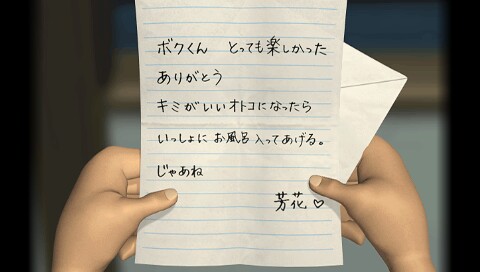 ボクくん　とっても楽しかった
ありがとう
キミがいいオトコになったら
いっしょに お風呂 入ってあげる。
じゃあね
芳花♡